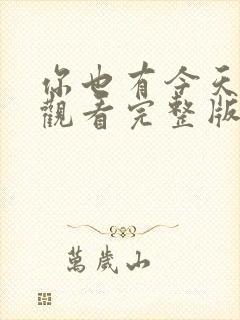 你也有今天
觀看完整版
萬歲山